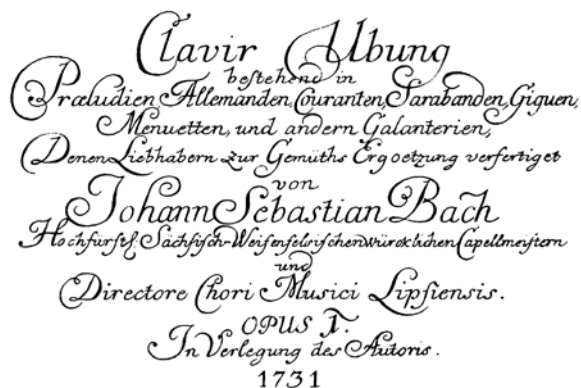 Clavir Ubung
bestehend in
Præludien, Allemanden, Couranten, Sarabanden, Giguen,
Menuetten, und andern Galanterien;
Denen Liebhabern zur Gemüths Ergoetzung verfertiget
von
Johann Sebastian Bach
Hochfürstl: Sächsisch-Weisenfelsischen würcklichen Capellmeistern
und
Directore Chori Musici Lipsiensis.
OPUS 1.
In Verlegung des Autoris.
1731